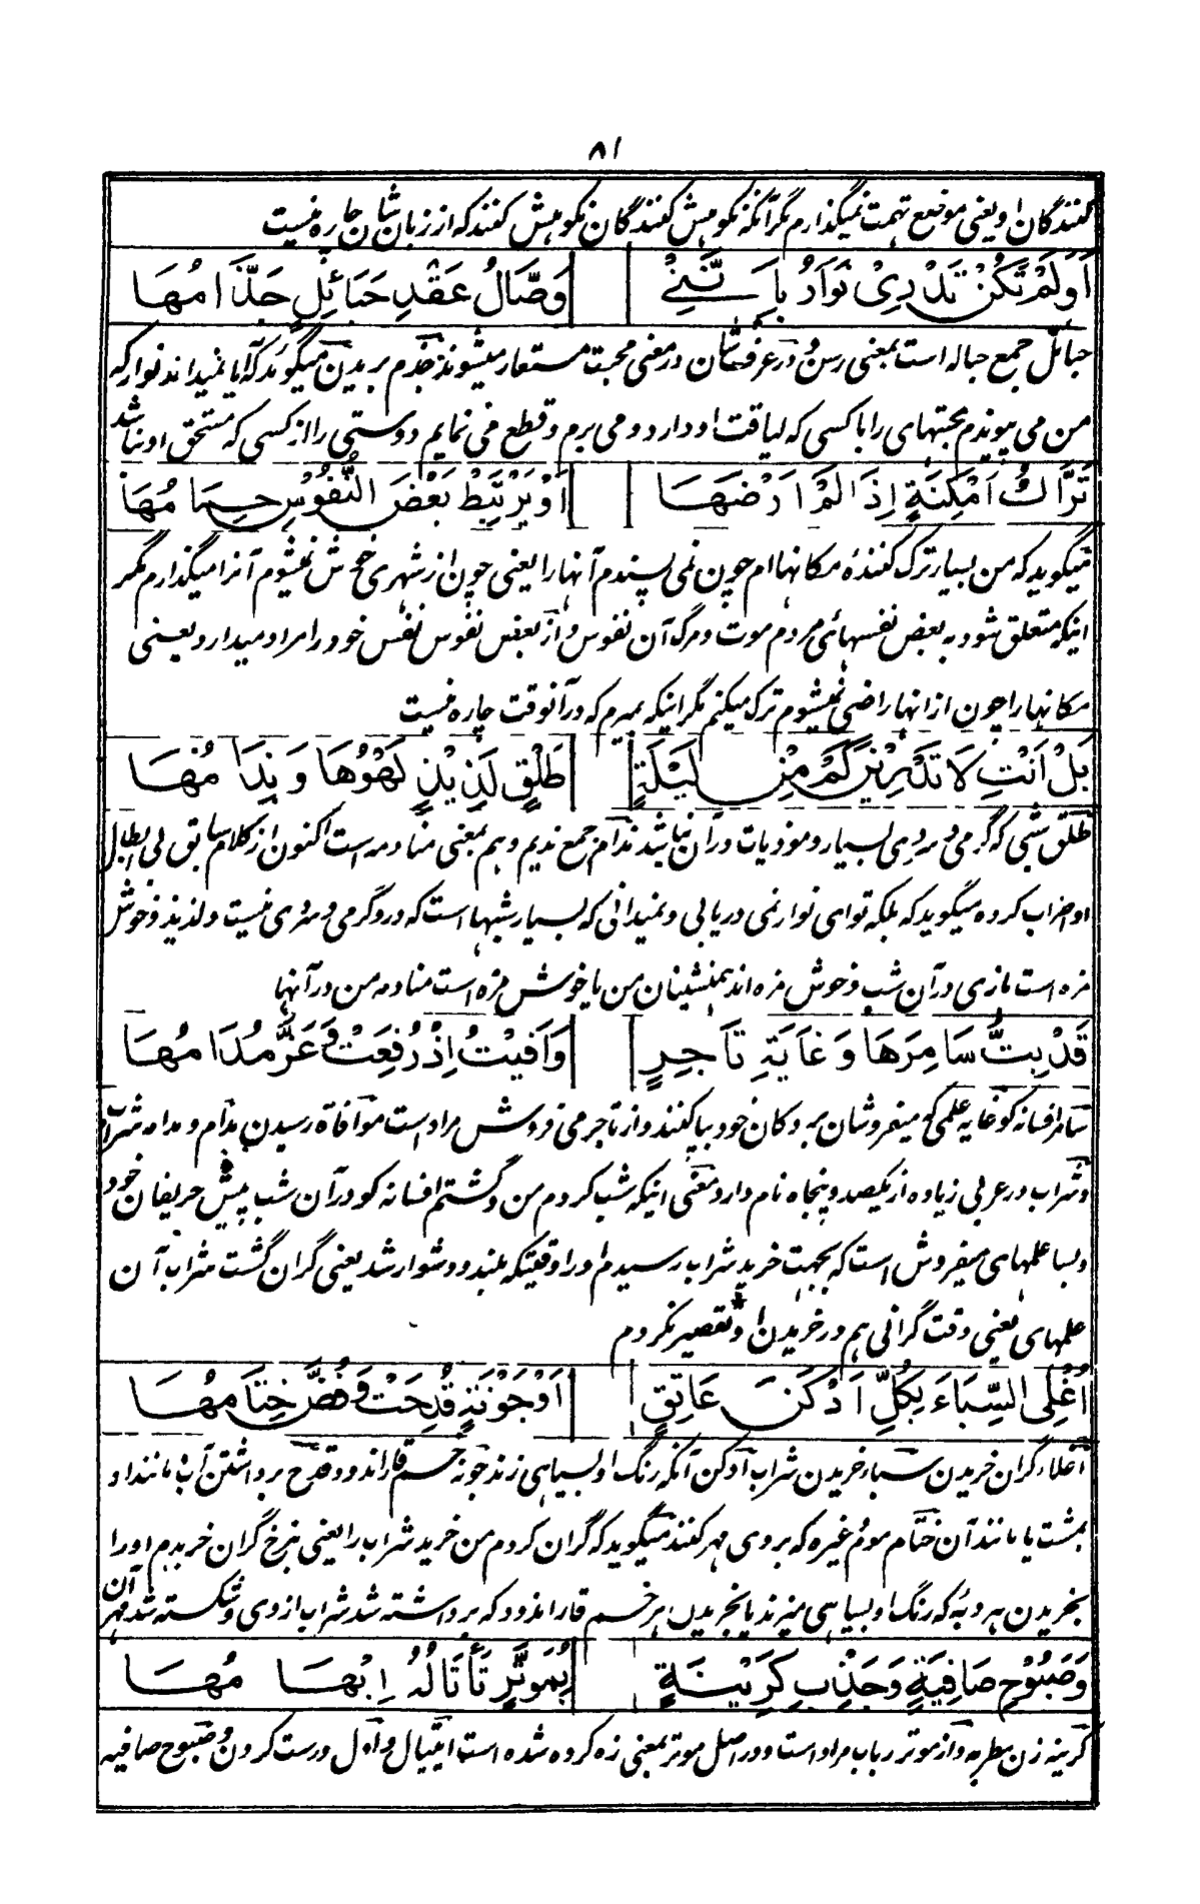 ۸۱
کنندگان او یعنی موضع تهمت نمیگذارم مگر آنکه نکوهش کنندگان نکوهش کنند که از زبان شان چاره نیست
أَوَلَمْ تَكُنْ تَدْرِیْ نَوَارُ بِأَنَّنِیْ وَصَّالُ عَقْدِ حَبَائِلٍ جَذَّامُهَا
حبائل جمع حباله است بمعنی رسن و در عرف شان در معنی محبت مستعار میشوند جذم بریدن میگوید که آیا نمیداند نوار که
من می پیوندم محبتهای را با کسی که لیاقت او دارد و می برم و قطع می نمایم دوستی را از کسی که مستحق او نباشد
تَرَّاكُ أَمْكِنَةٍ إِذَا لَمْ أَرْضَهَا أَوْ يَرْتَبِطْ بَعْضَ النُّفُوْسِ حِمَامُهَا
میگوید که من بسیار ترک کنندهٔ مکانها ام چون نمی پسندم آنها را یعنی چون از شهری خوش نمیشوم آنرا میگذارم مگر
اینکه متعلق شود به بعض نفسهای مردم موت و مرگ آن نفوس و از بعض نفوس نفس خود را مراد میدارد یعنی
مکانها را چون از انها راضی نمیشوم ترک میکنم مگر اینکه بمیرم که در آنوقت چاره نیست
بَلْ أَنْتِ لَا تَدْرِیْنَ كَمْ مِنْ لَیْلَةٍ طَلْقٍ لَذِیْذٍ لَهْوُهَا وَنِدَامُهَا
طلق شبی که گرمی و سردی بسیار و موذیات در آن نباشد ندام جمع ندیم و هم بمعنی منادمه است اکنون از کلام سابق بی ابطال
او اضراب کرده میگوید که بلکه تو ای نوار نمی دریابی و نمیدانی که بسیار شبها است که درو گرمی و سردی نیست و لذیذ و خوش
مزه است بازی در آن شب و خوش مزه اند همنشینان من یا خوش مزه است منادمه من در آنها
قَدْ بِتُّ سَامِرَهَا وَغَایَةِ تَاجِرٍ وَافَیْتُ إِذْ رُفِعَتْ وَعَزَّ مُدَامُهَا
سامر افسانه گو غایه علمی که میفروشان بر دکان خود بپا کنند و از تاجر می فروش مراد است موافاة رسیدن مدام و مدامه شراب
و شراب در عربی زیاده از یکصد و پنجاه نام دارد و معنی اینکه شب کردم من و گشتم افسانه گو در آن شب پیش حریفان خود
و بسا علمهای میفروش است که بجهت خرید شراب رسیدم او را وقتیکه بلند و دشوار شد یعنی گران گشت شراب آن
علمهای یعنی وقت گرانی هم در خریدن او تقصیر نکردم
أُغْلِی السِّبَاءَ بِكُلِّ أَدْكَنَ عَاتِقٍ أَوْ جَوْنَةٍ قُدِحَتْ وَفُضَّ خِتَامُهَا
اغلاء گران خریدن سباء خریدن شراب ادکن آنکه رنگ او بسیاهی زند جونه خم قار اندود قدح برداشتن آب مانند او
بمشت یا مانند آن ختام موم غیره که بروی مهر کنند میگوید که گران کردم من خرید شراب را یعنی بنرخ گران خریدم او را
بخریدن هر دبه که رنگ او بسیاهی میزند یا بخریدن هر خم قار اندود که برداشته شد شراب از وی و شکسته شد مهر آن
وَصَبُوْحِ صَافِیَةٍ وَجَذْبِ كَرِیْنَةٍ بِمُوَتَّرٍ تَأْتَالُهُ إِبْهَامُهَا
کرینه زن مطربه و از موتر رباب مراد است و در اصل موتر بمعنی زه کرده شده است ایتیال و اول درست کردن و صبوح صافیه